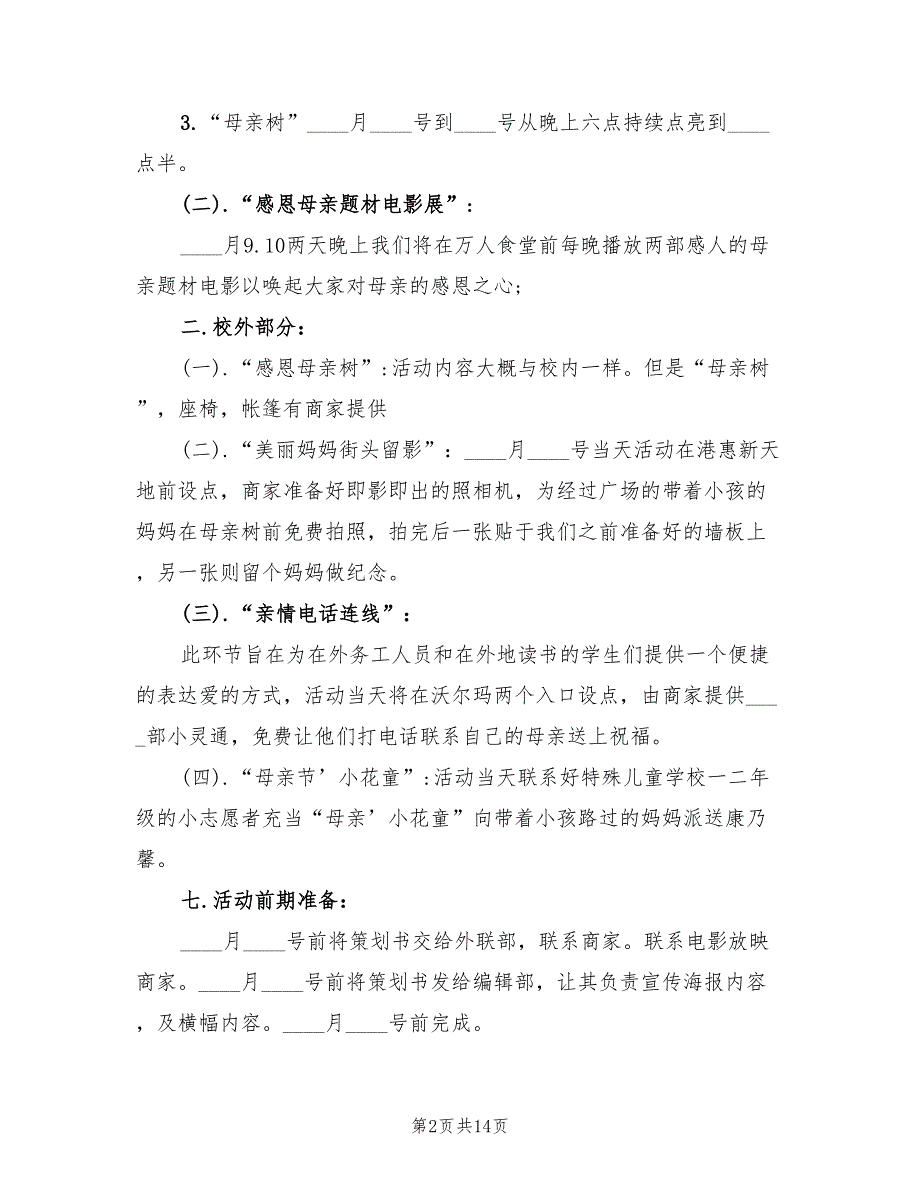 3.“母亲树”____月____号到____号从晚上六点持续点亮到____
点半。
(二).“感恩母亲题材电影展”:
____月9.10两天晚上我们将在万人食堂前每晚播放两部感人的母
亲题材电影以唤起大家对母亲的感恩之心;
二.校外部分:
(一).“感恩母亲树”:活动内容大概与校内一样。但是“母亲树
”,座椅,帐篷有商家提供
(二).“美丽妈妈街头留影”:____月____号当天活动在港惠新天
地前设点,商家准备好即影即出的照相机,为经过广场的带着小孩的
妈妈在母亲树前免费拍照,拍完后一张贴于我们之前准备好的墙板上
,另一张则留个妈妈做纪念。
(三).“亲情电话连线”:
此环节旨在为在外务工人员和在外地读书的学生们提供一个便捷
的表达爱的方式,活动当天将在沃尔玛两个入口设点,由商家提供___
_部小灵通,免费让他们打电话联系自己的母亲送上祝福。
(四).“母亲节’小花童”:活动当天联系好特殊儿童学校一二年
级的小志愿者充当“母亲’小花童”向带着小孩路过的妈妈派送康乃
馨。
七.活动前期准备:
____月____号前将策划书交给外联部,联系商家。联系电影放映
商家。____月____号前将策划书发给编辑部,让其负责宣传海报内容
,及横幅内容。____月____号前完成。
第2页共14页